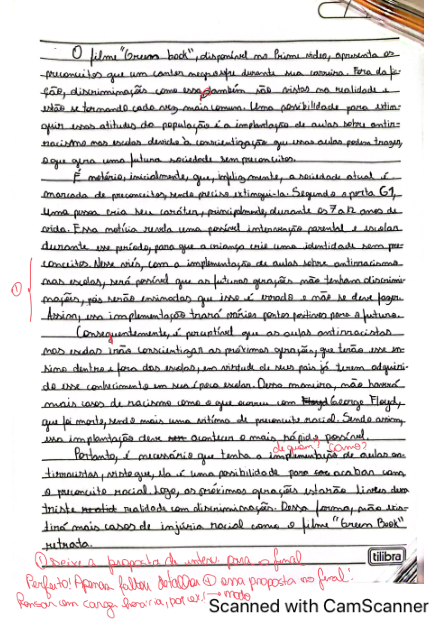 O filme "Green book", disponível no Prime video, apresenta os
preconceitos que um cantor negro sofre durante sua carreira. Fora da fic-
ção, discriminações como essa também são vistas na realidade e
estão se tornando cada vez mais comum. Uma possibilidade para extin-
guir essas atitudes da população é a implantação de aulas sobre antir-
racismo nas escolas devido à conscientização que essas aulas podem trazer,
o que gera uma futura sociedade sem preconceitos.
É notório, inicialmente, que, infelizmente, a sociedade atual é
marcada de preconceitos, sendo preciso extingui-la. Segundo o portal G1,
Uma pessoa cria seu caráter, principalmente, durante os 7 a 12 anos de
vida. Essa notícia revela uma possível intervenção parental e escolar
durante esse período, para que a criança crie uma identidade sem pre-
conceitos. Nesse viés, com a implementação de aulas sobre antirracismo
① nas escolas, será possível que as futuras gerações não tenham discrimi-
nações, pois serão ensinadas que isso é errado e não se deve fazer.
Assim, essa implementação trará vários pontos positivos para o futuro.
Consequentemente, é perceptível que as aulas antirracistas
nas escolas irão conscientizar as próximas gerações, que terão esse en-
sino dentro e fora das escolas, em virtude de seus pais já terem adquiri-
do esse conhecimento em seu/pela escolar. Dessa maneira, não haverá
mais casos de racismo como o que ocorreu com George Floyd,
que foi morto, sendo mais uma vítima de preconceito racial. Sendo assim,
essa implantação deve acontecer o mais rápido possível.
de quem? como?
Portanto, é necessário que tenha a implementação de aulas an-
tirracistas, visto que, ela é uma possibilidade para acabar com
o preconceito racial. Logo, as próximas gerações estarão livres dessa
triste realidade com discriminações. Dessa forma, não exis-
tirá mais casos de injúria racial como o filme "Green Book"
retrata.
① Deixe a proposta de interv. para o final
Perfeito! Apenas faltou detalhar ① essa proposta no final:
Pensar em carga horária, por ex. → modo
tilibra
Scanned with CamScanner